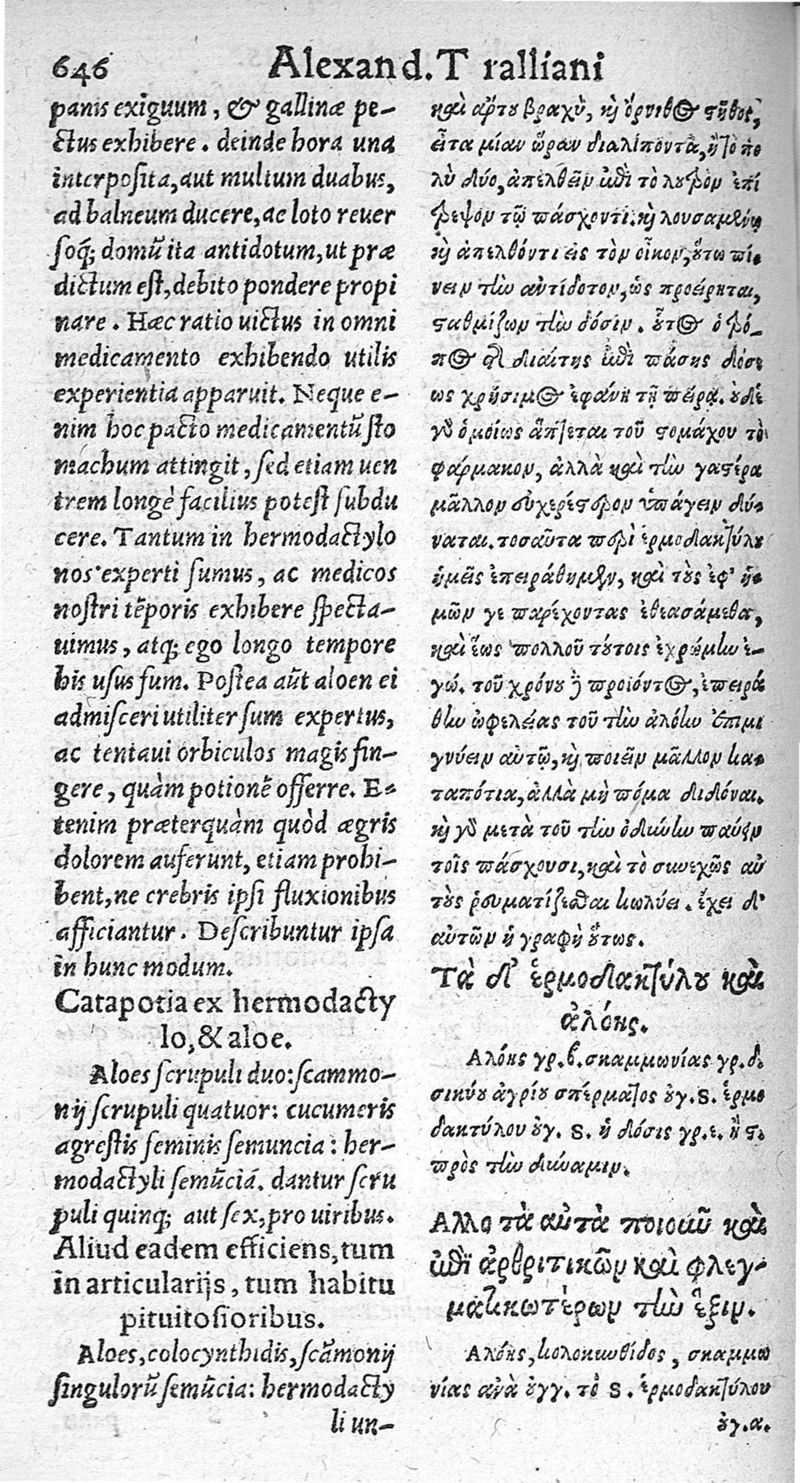 646 Alexand. Tralliani
panis exiguum, & gallinæ pe-
ctus exhibere. deinde hora una
interposita, aut multum duabus,
ad balneum ducere, ac loto reuer
soq; domũ ita antidotum, ut præ
dictum est, debito pondere propi
nare. Hæc ratio uictus in omni
medicamento exhibendo utilis
experientia apparuit. Neque e-
nim hoc pacto medicamentũ sto
machum attingit, sed etiam uen
trem longè facilius potest subdu
cere. Tantum in hermodactylo
nos experti sumus, ac medicos
nostri tẽporis exhibere specta-
uimus, atq; ego longo tempore
his usus sum. Postea aũt aloen ei
admisceri utiliter sum expertus,
ac tentaui orbiculos magis fin-
gere, quàm potionẽ offerre. E-
tenim præterquàm quòd ægris
dolorem auferunt, etiam prohi-
bent, ne crebris ipsi fluxionibus
afficiantur. Describuntur ipsa
in hunc modum.
Catapotia ex hermodacty
lo, & aloe.
Aloes scrupuli duo: scammo-
nij scrupuli quatuor: cucumeris
agrestis seminis semuncia: her-
modactyli semũcia. dantur scru
puli quinq; aut sex, pro uiribus.
Aliud eadem efficiens, tum
in articularijs, tum habitu
pituitosioribus.
Aloes, colocynthidis, scãmonij
singulorũ semũcia: hermodacty
li un-
καὶ ἄρτου βραχὺ, καὶ ὄρνιθος στῆθος,
εἶτα μίαν ὥραν διαλιπόντα, ἢ τὸ πο
λὺ δύο, ἀπελθεῖν ἐπὶ τὸ λουτρὸν ἐπί
τρεψον τῷ πάσχοντι. καὶ λουσαμένῳ
καὶ ἀπελθόντι εἰς τὸν οἶκον, οὕτω πί-
νειν τὴν ἀντίδοτον, ὡς προείρηται,
σταθμίζων τὴν δόσιν. οὗτος ὁ τρό-
πος τῆς διαίτης ἐπὶ πάσης δόσε
ως χρήσιμος ἐφάνη τῇ πείρᾳ. οὐδὲ
γὰρ ὁμοίως ἅπτεται τοῦ στομάχου τὸ
φάρμακον, ἀλλὰ καὶ τὴν γαστέρα
μᾶλλον εὐχερέστερον ὑπάγειν δύ-
ναται. τοσαῦτα περὶ ἑρμοδακτύλου
ἡμεῖς ἐπειράθημεν, καὶ τοὺς ἐφ' ἡ-
μῶν γε παρέχοντας ἐθεασάμεθα,
καὶ ἕως πολλοῦ τούτοις ἐχρώμην ἐ-
γώ. τοῦ χρόνου δὲ προϊόντος, ἐπειρά
θην ὠφελείας τοῦ τὴν ἀλόην ἐπιμι
γνύειν αὐτῷ, καὶ ποιεῖν μᾶλλον κα-
ταπότια, ἀλλὰ μὴ πόμα διδόναι.
καὶ γὰρ μετὰ τοῦ τὴν ὀδύνην παύειν
τοῖς πάσχουσι, καὶ τὸ συνεχῶς αὐ
τοὺς ῥευματίζεσθαι κωλύει. ἔχει δ'
αὐτῶν ἡ γραφὴ οὕτως.
Τὰ δι' ἑρμοδακτύλου καὶ
ἀλόης.
Αλόης γρ. β. σκαμμωνίας γρ. δ.
σικύου ἀγρίου σπέρματος οὐγ. s. ἑρμο
δακτύλου οὐγ. s. ἡ δόσις γρ. ε. ἢ ϛ.
πρὸς τὴν δύναμιν.
Αλλο τὰ αὐτὰ ποιοῦν καὶ
ἐπὶ ἀρθριτικῶν καὶ φλεγ-
ματικωτέρων τὴν ἕξιν.
Αλόης, κολοκυνθίδος, σκαμμω
νίας ἀνὰ οὐγγ. τὸ s. ἑρμοδακτύλου
οὐγ. α.